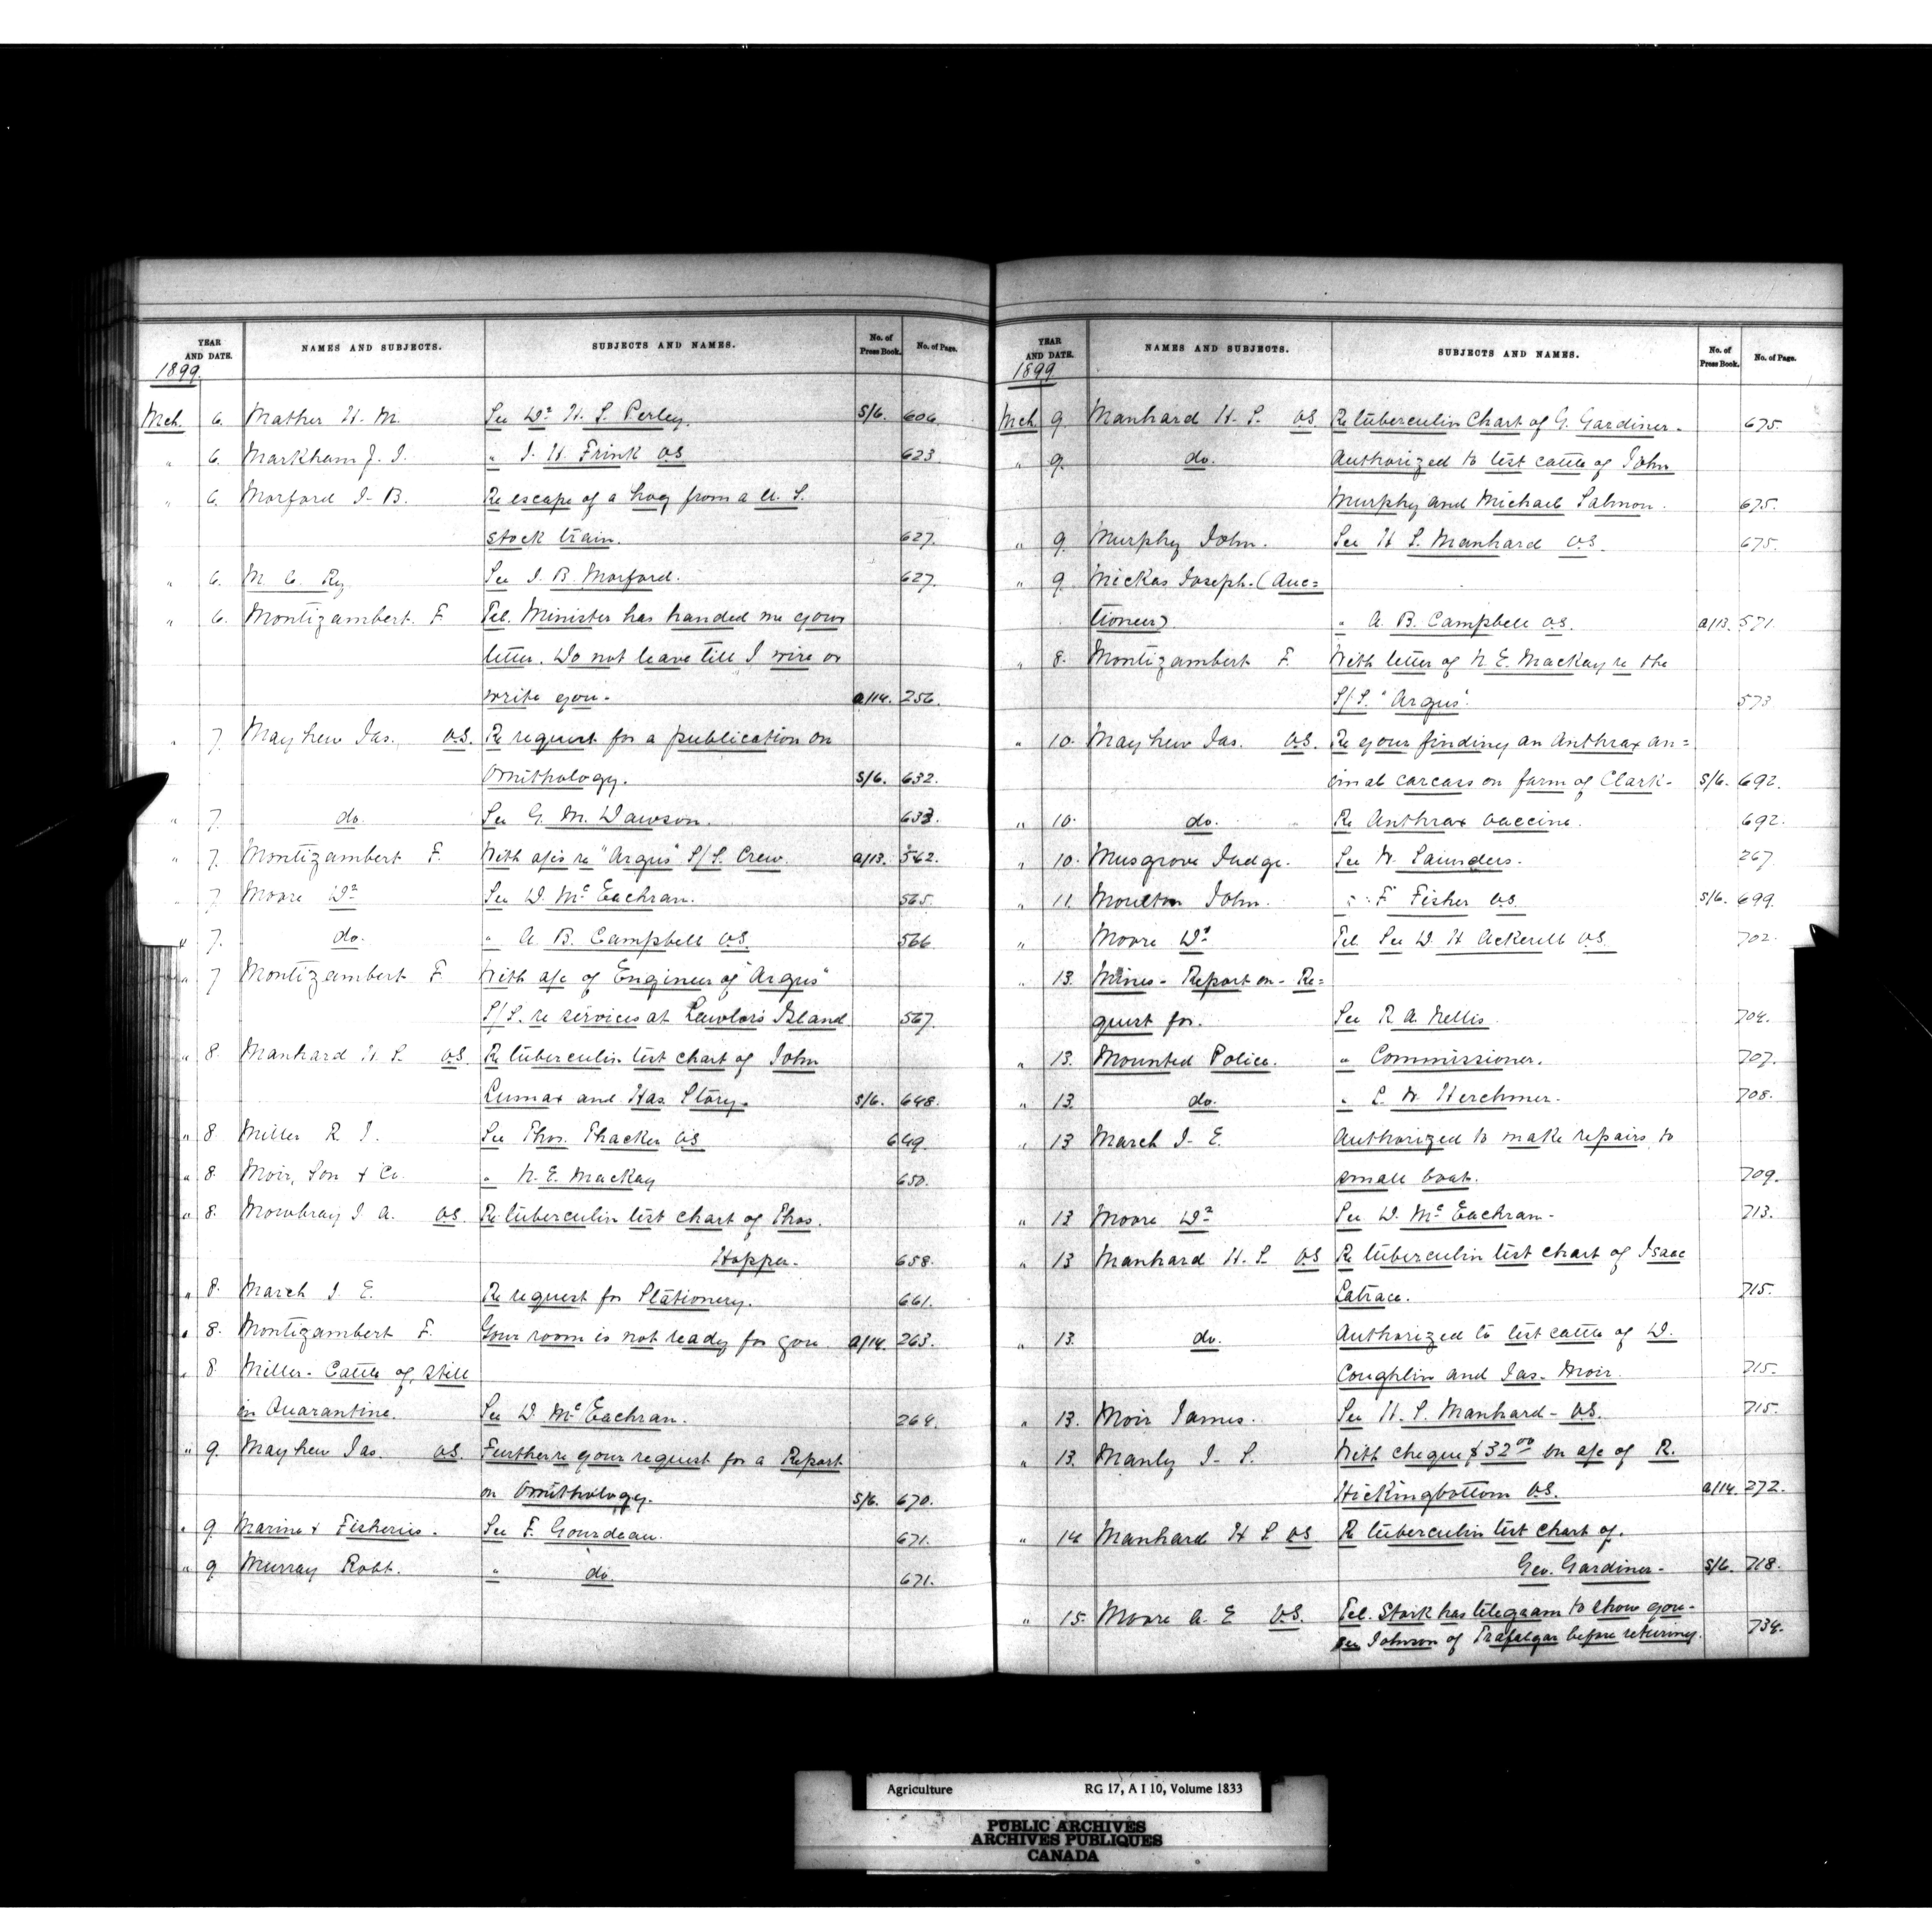 YEAR AND DATE. NAMES AND SUBJECTS. SUBJECTS AND NAMES. No. of Press Book. No. of Page.
1899.
Mch. 6. Mather H. M. See Dr H. S. Perley. S/6. 606.
" 6. Markham J. J. " J. H. Frink V.S. 623
" 6. Morford J. B. Re escape of a hog from a U. S.
stock train. 627.
" 6. M. C. Ry See J. B. Morford. 627.
" 6. Montizambert. F. Tel. Minister has handed me your
letter. Do not leave till I wire or
write you. a/14. 256.
" 7. Mayhew Jas. V.S. Re request for a publication on
Ornithology. S/6. 632.
" 7. do. See G. M. Dawson. 633.
" 7. Montizambert F. With a/cs re "Argus" S/S. Crew. a/13. 562.
" 7. Moore Dr See D. McEachran. 565.
" 7. do. " A. B. Campbell V.S. 566
" 7 Montizambert F. With a/c of Engineer of "Argus"
S/S. re services at Lawlor's Island 567.
" 8. Manhard H. S. V.S. Re tuberculin test chart of John
Lumax and Has. Story. S/6. 648.
" 8. Miller R. J. See Thos. Thacker V.S 649.
" 8. Moir, Son & Co. " N. E. MacKay 650.
" 8. Mowbray J. A. V.S. Re tuberculin test chart of Thos.
Hopper. 658.
" 8. March J. E. Re request for Stationery. 661.
" 8. Montizambert F. Your room is not ready for you. a/14. 263.
" 8 Miller - Cattle of, still
in Quarantine. See D. McEachran. 264.
" 9. Mayhew Jas. V.S. Further re your request for a Report
on Ornithology. S/6. 670.
" 9. Marine & Fisheries. See F. Gourdeau. 671.
" 9 Murray Robt. " do. 671.
YEAR AND DATE. NAMES AND SUBJECTS. SUBJECTS AND NAMES. No. of Press Book. No. of Page.
1899
Mch. 9. Manhard H. S. V.S. Re tuberculin Chart of G. Gardiner. 675.
" 9. do. Authorized to test cattle of John
Murphy and Michael Salmon. 675.
" 9. Murphy John. See H S. Manhard V.S. 675.
" 9. Mickas Joseph. (Auc=
tioneer) " A. B. Campbell V.S. a/13. 571.
" 8. Montizambert F. With letter of N. E. MacKay re the
S/S. "Argus". 573
" 10. Mayhew Jas. V.S. Re your finding an Anthrax an=
imal carcass on farm of Clark. S/6. 692.
" 10. do. Re Anthrax vaccine. 692.
" 10. Musgrove Judge. See W. Saunders. 267.
" 11. Moulton John. " F. Fisher V.S. S/6. 699.
" Moore Dr Tel See D. H Ackerill V.S. 702.
" 13. Mines - Report on - Re=
quest for. See R. A. Nellis. 704.
" 13. Mounted Police. " Commissioner. 707.
" 13. do. " L. W. Herchmer. 708.
" 13 March J. E. Authorized to make repairs to
small boat. 709.
" 13 Moore Dr See D. McEachran. 713.
" 13 Manhard H. S. V.S Re tuberculin test chart of Isaac
Latrace. 715.
" 13. do. Authorized to test cattle of D.
Coughlin and Jas. Moir. 715.
" 13. Moir James. See H. S. Manhard - V.S. 715.
" 13. Manly J. S. With cheque $32 00 on a/c of R.
Hickingbottom V.S. a/14. 272.
" 14 Manhard H S. V.S Re tuberculin test chart of.
Geo. Gardiner. S/6. 718.
" 15. Moore A. E V.S. Tel. Stork has telegram to show you.
see Johnson of Trafalgar before returning. 734.
Agriculture RG 17, A I 10, Volume 1833
PUBLIC ARCHIVES
ARCHIVES PUBLIQUES
CANADA